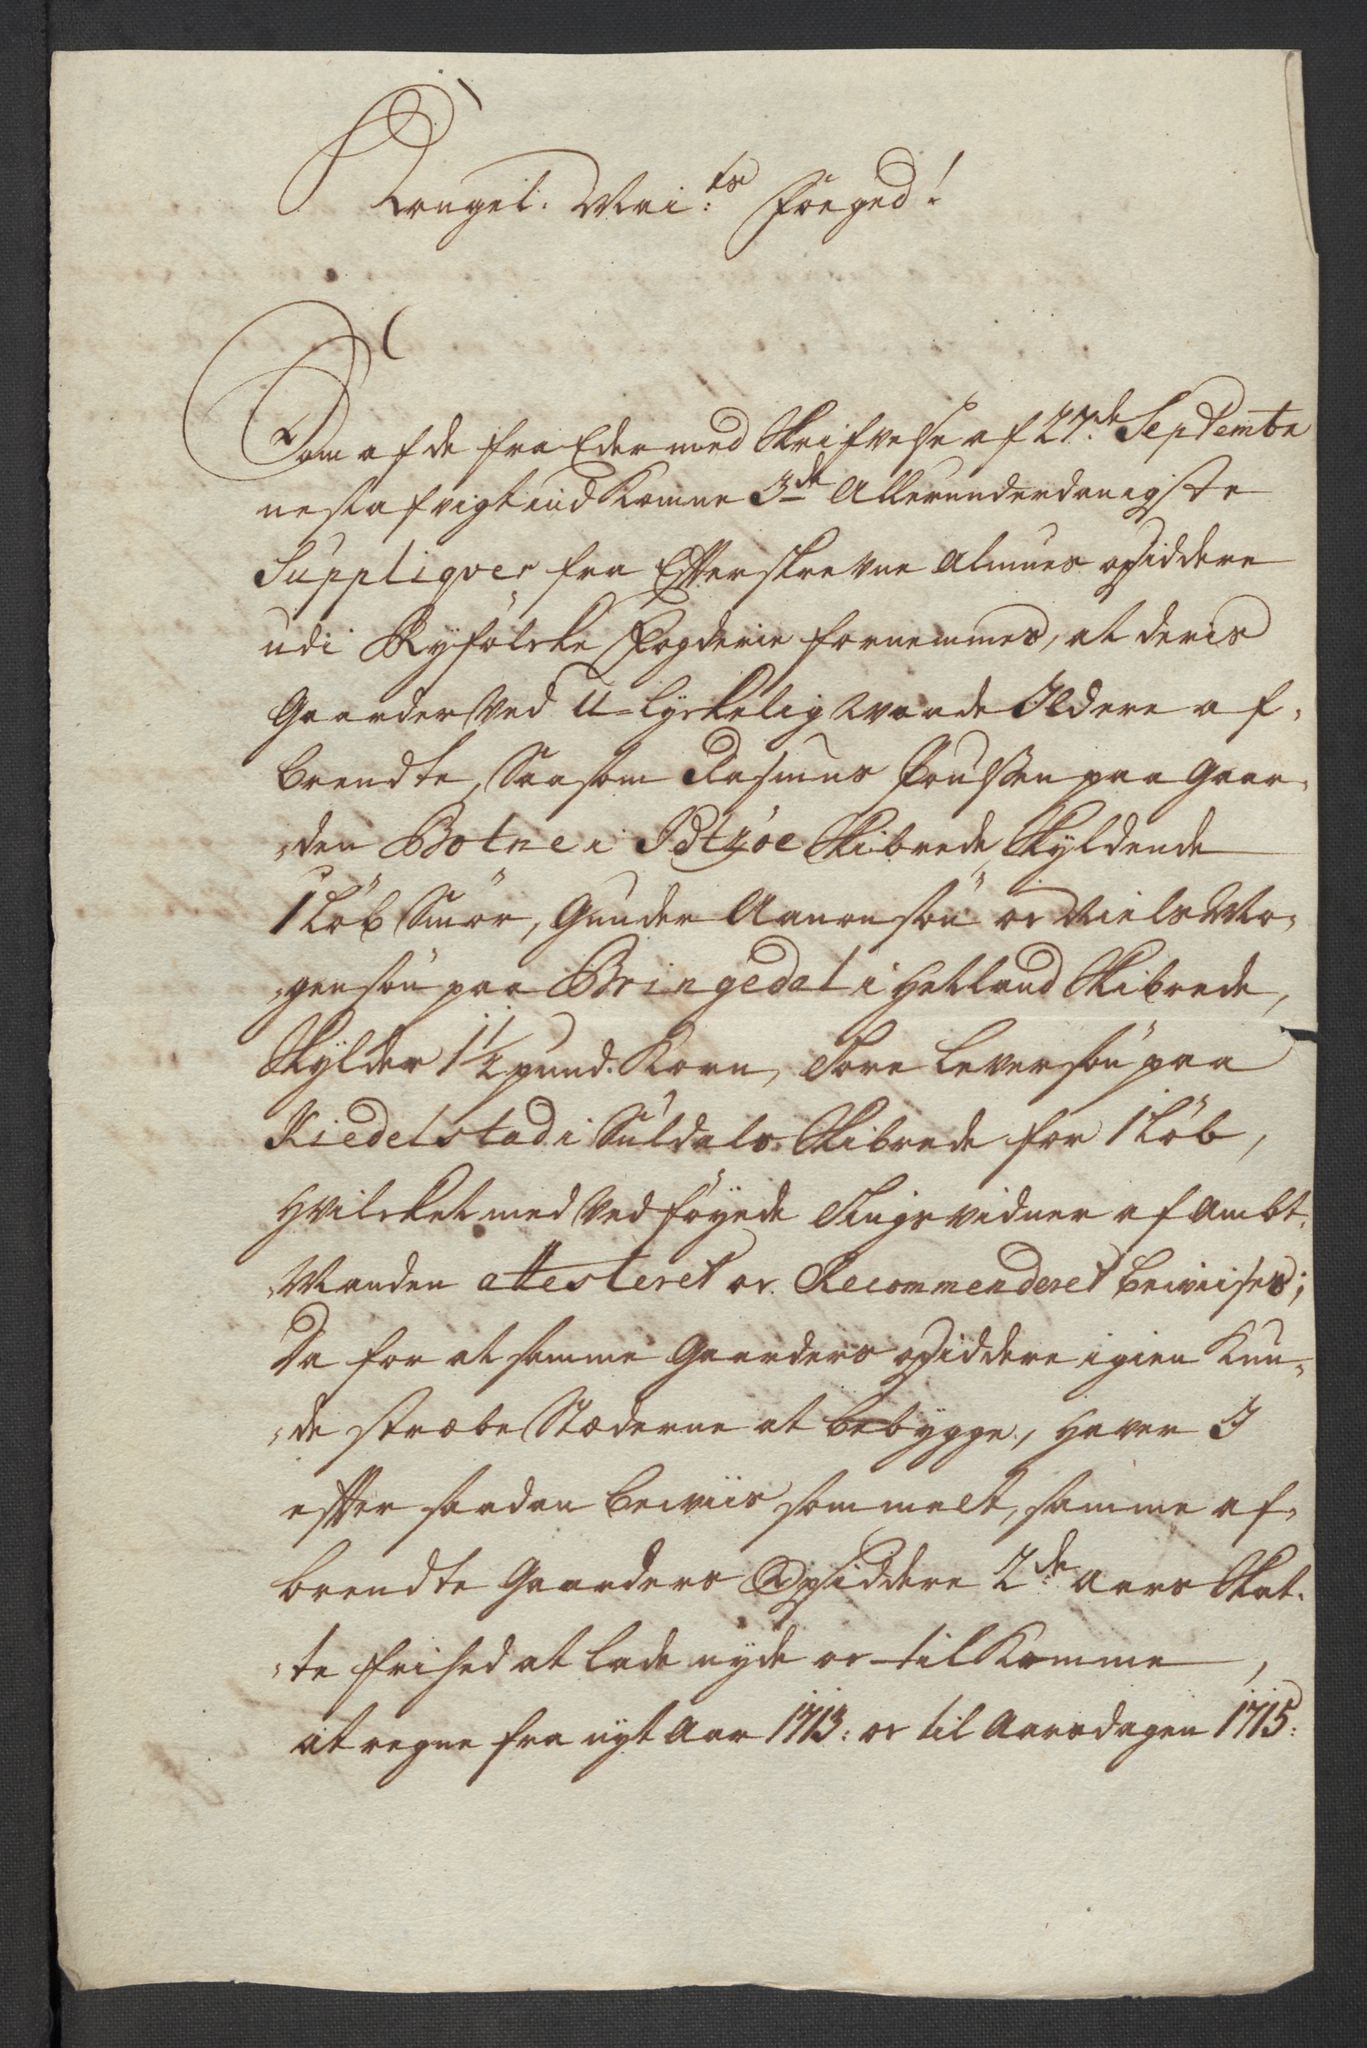 Kongel. Mai:ts Foeged!
Som af de fra Eder med Skrifvelse af 27.de Septembr
nestafvigt indkomne 3de Allerunderdanigste
Suppliqver fra Effterskrevne Almues opsiddere
udi Ryfölske Fogderie fornemmes, at deris
Gaarder Ved U-lyckelig Vaade Ild ere af-
brendte, Saasom Rasmus Poulsen paa Gaar-
-den Botne i Idtzöe Skibrede, Skyldende
1 Löb Smör, Gunder Aanonsön oc Niels Mo-
-gensön paa Bringedal i Hetland Skibrede,
Skylder 1 1/2 pund Korn, Tore Leversön paa
Kiedelstad i Suldals Skibrede for 1 Löb,
Hvilcket med Ved föyede Tingsvidner af Ambt-
-Manden attesteret oc Recommenderet beviises;
Da for at samme Gaarders opsiddere igien Kun-
-de stræbe Stæderne at bebygge, Haver I
effter saadan beviis som melt, samme af-
brendte Gaarders Opsiddere 2de Aars Skat-
-te frihed at lade nyde oc tilkomme,
at regne fra nyt Aar 1713: oc til Aarsdagen 1715: